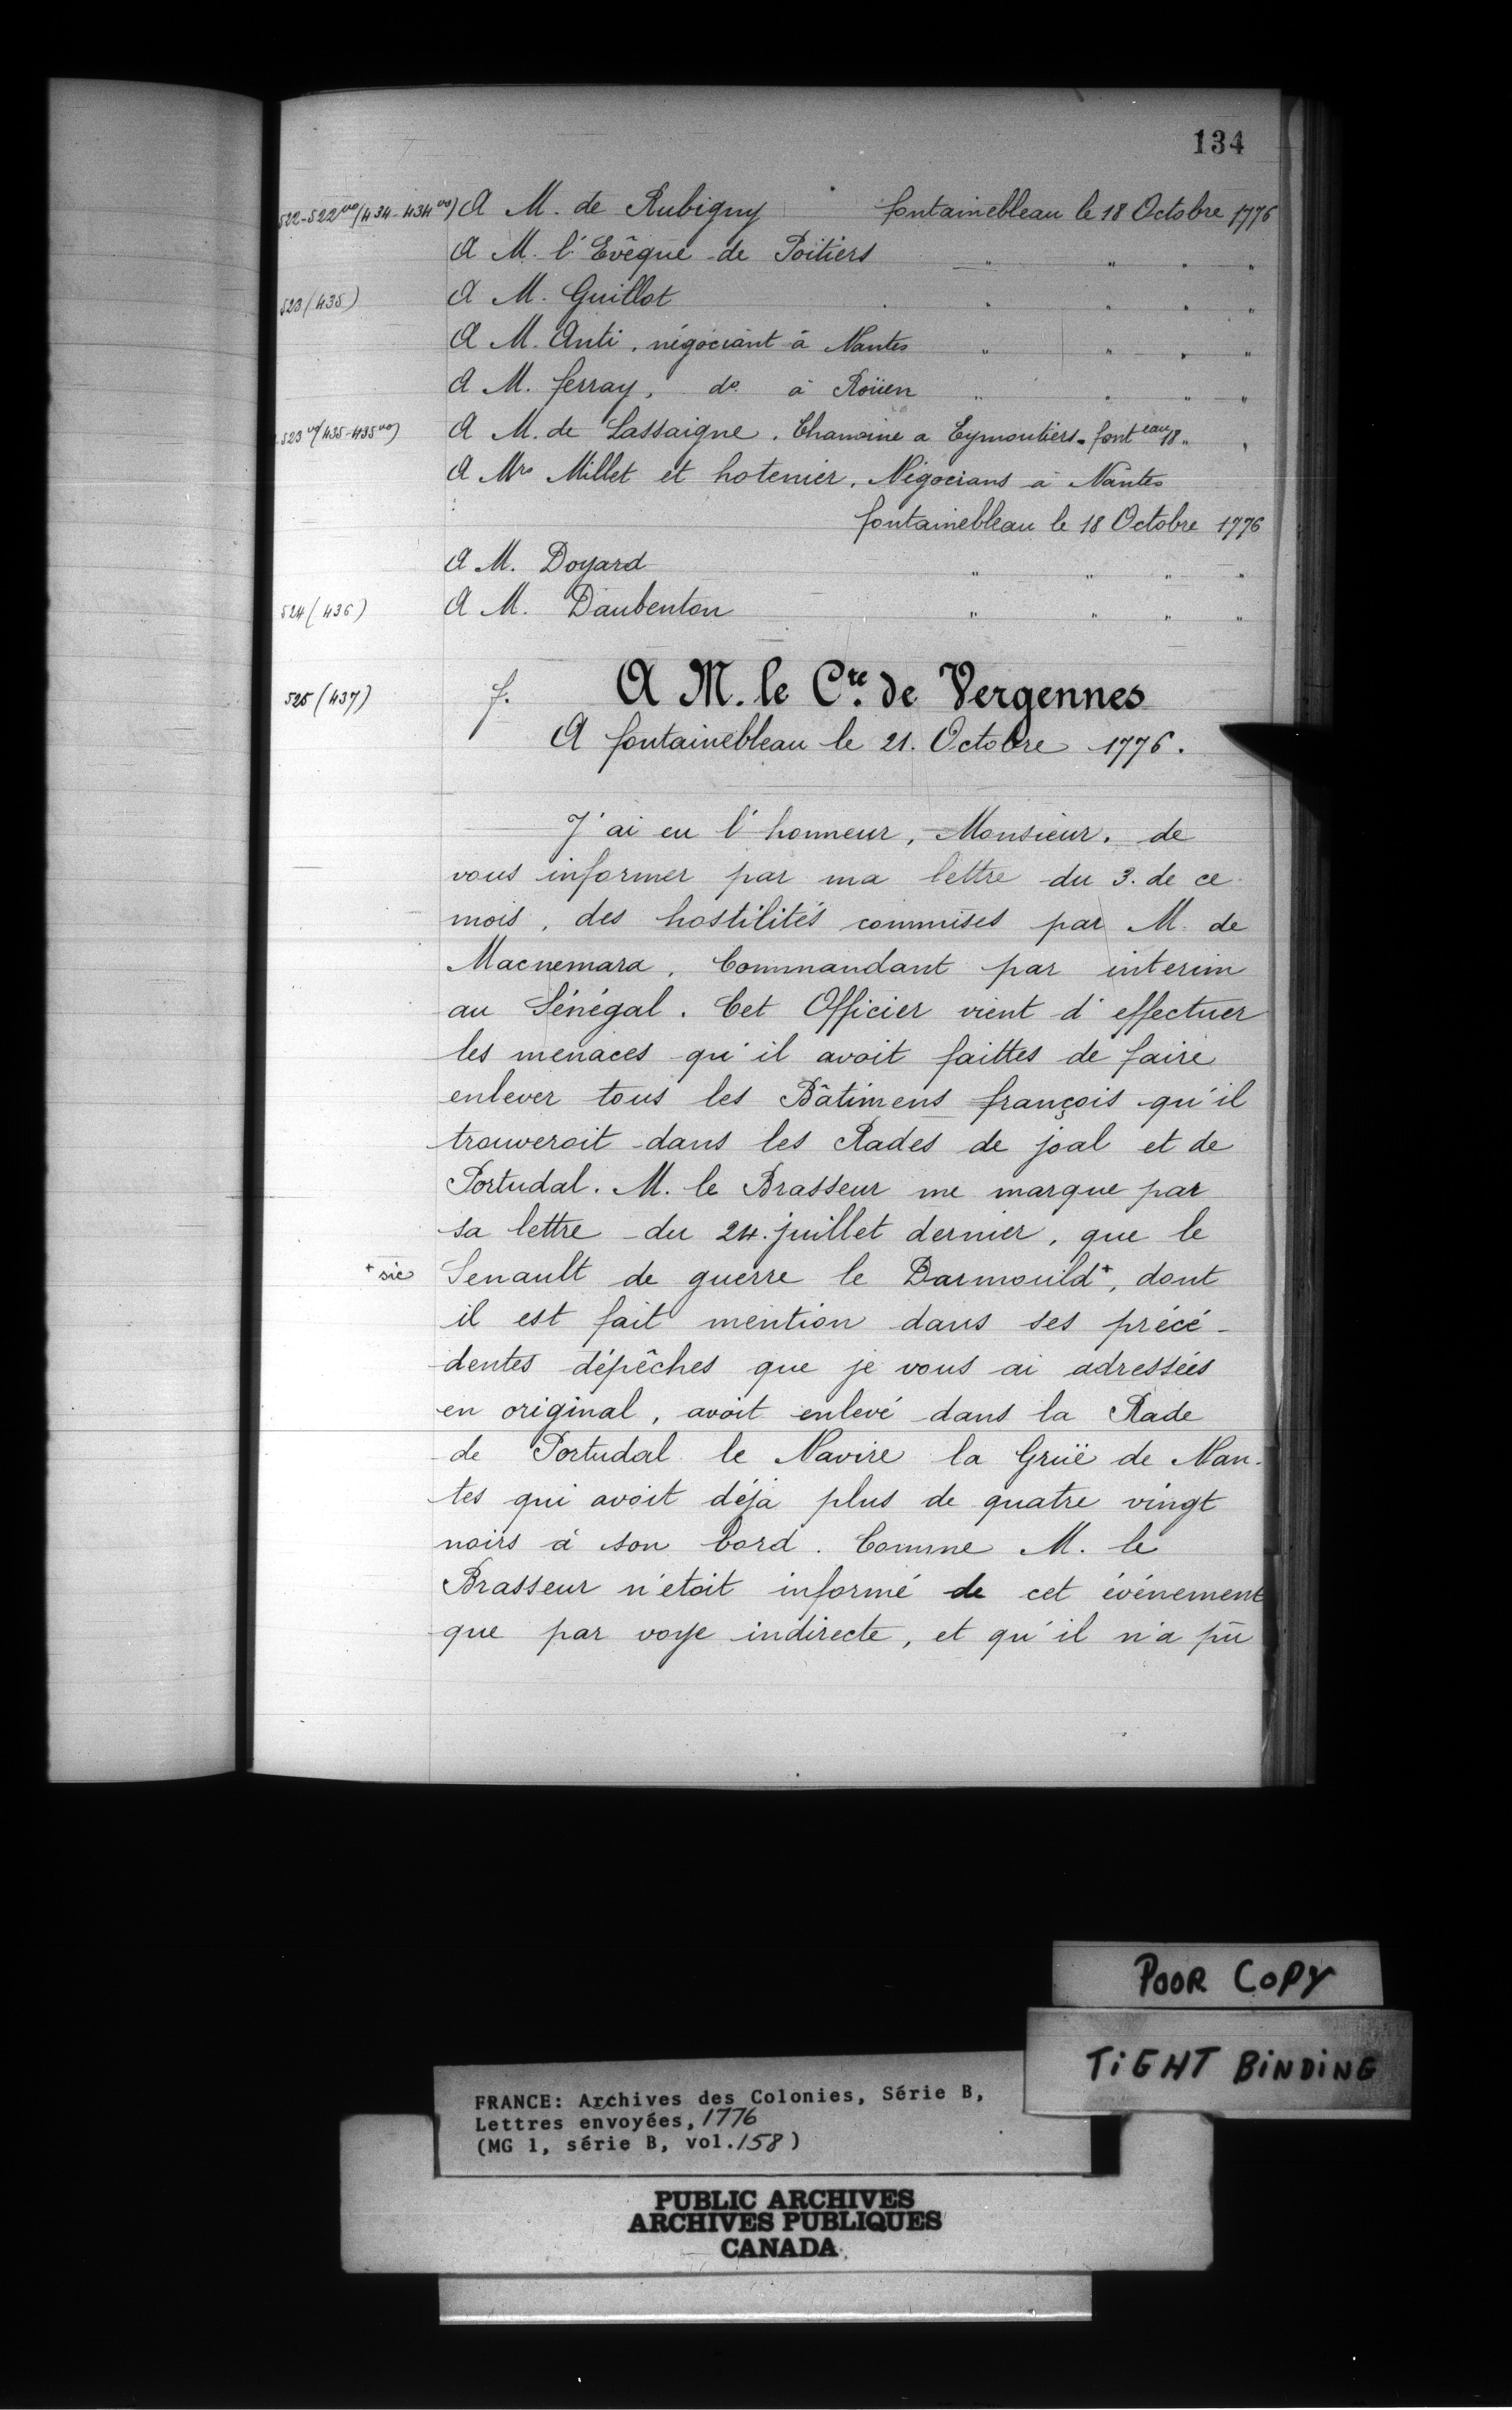 134
522-522vo (434-434vo) A M. de Rubigny fontainebleau le 18 Octobre 1776
A M. l'Evêque de Poitiers " " " "
523 (435) A M. Guillot " " " "
A M. Anti, négociant à Nantes " " " "
A M. ferray, do à Roüen " " " "
523vo (435-435vo) A M. de Lassaigne. Chanoine a Eymoutiers. fonteau 18 " "
A Mrs Millet et hotenier, Négocians à Nantes
fontainebleau le 18 Octobre 1776
A M. Doyard " " " "
524 (436) A M. Daubenton " " " "
525 (437) f. A M. le Cte. de Vergennes
A fontainebleau le 21. Octobre 1776.
J'ai eu l'honneur, Monsieur, de
vous informer par ma lettre du 3. de ce
mois, des hostilités commises par M. de
Macnemara, Commandant par interim
au Sénégal. Cet Officier vient d'effectuer
les menaces qu'il avoit faittes de faire
enlever tous les Bâtimens françois qu'il
trouveroit dans les Rades de joal et de
Portudal. M. le Brasseur me marque par
sa lettre du 24. juillet dernier, que le
+ sic Senault de guerre le Darmould+, dont
il est fait mention dans ses précé-
dentes dépêches que je vous ai adressées
en original, avoit enlevé dans la Rade
de Portudal le Navire la Gruë de Nan-
tes qui avoit déja plus de quatre vingt
noirs à son bord. Comme M. le
Brasseur n'etoit informé de cet événement
que par voye indirecte, et qu'il n'a pû
POOR COPY
TIGHT BINDING
FRANCE: Archives des Colonies, Série B,
Lettres envoyées, 1776
(MG 1, série B, vol. 158)
PUBLIC ARCHIVES
ARCHIVES PUBLIQUES
CANADA